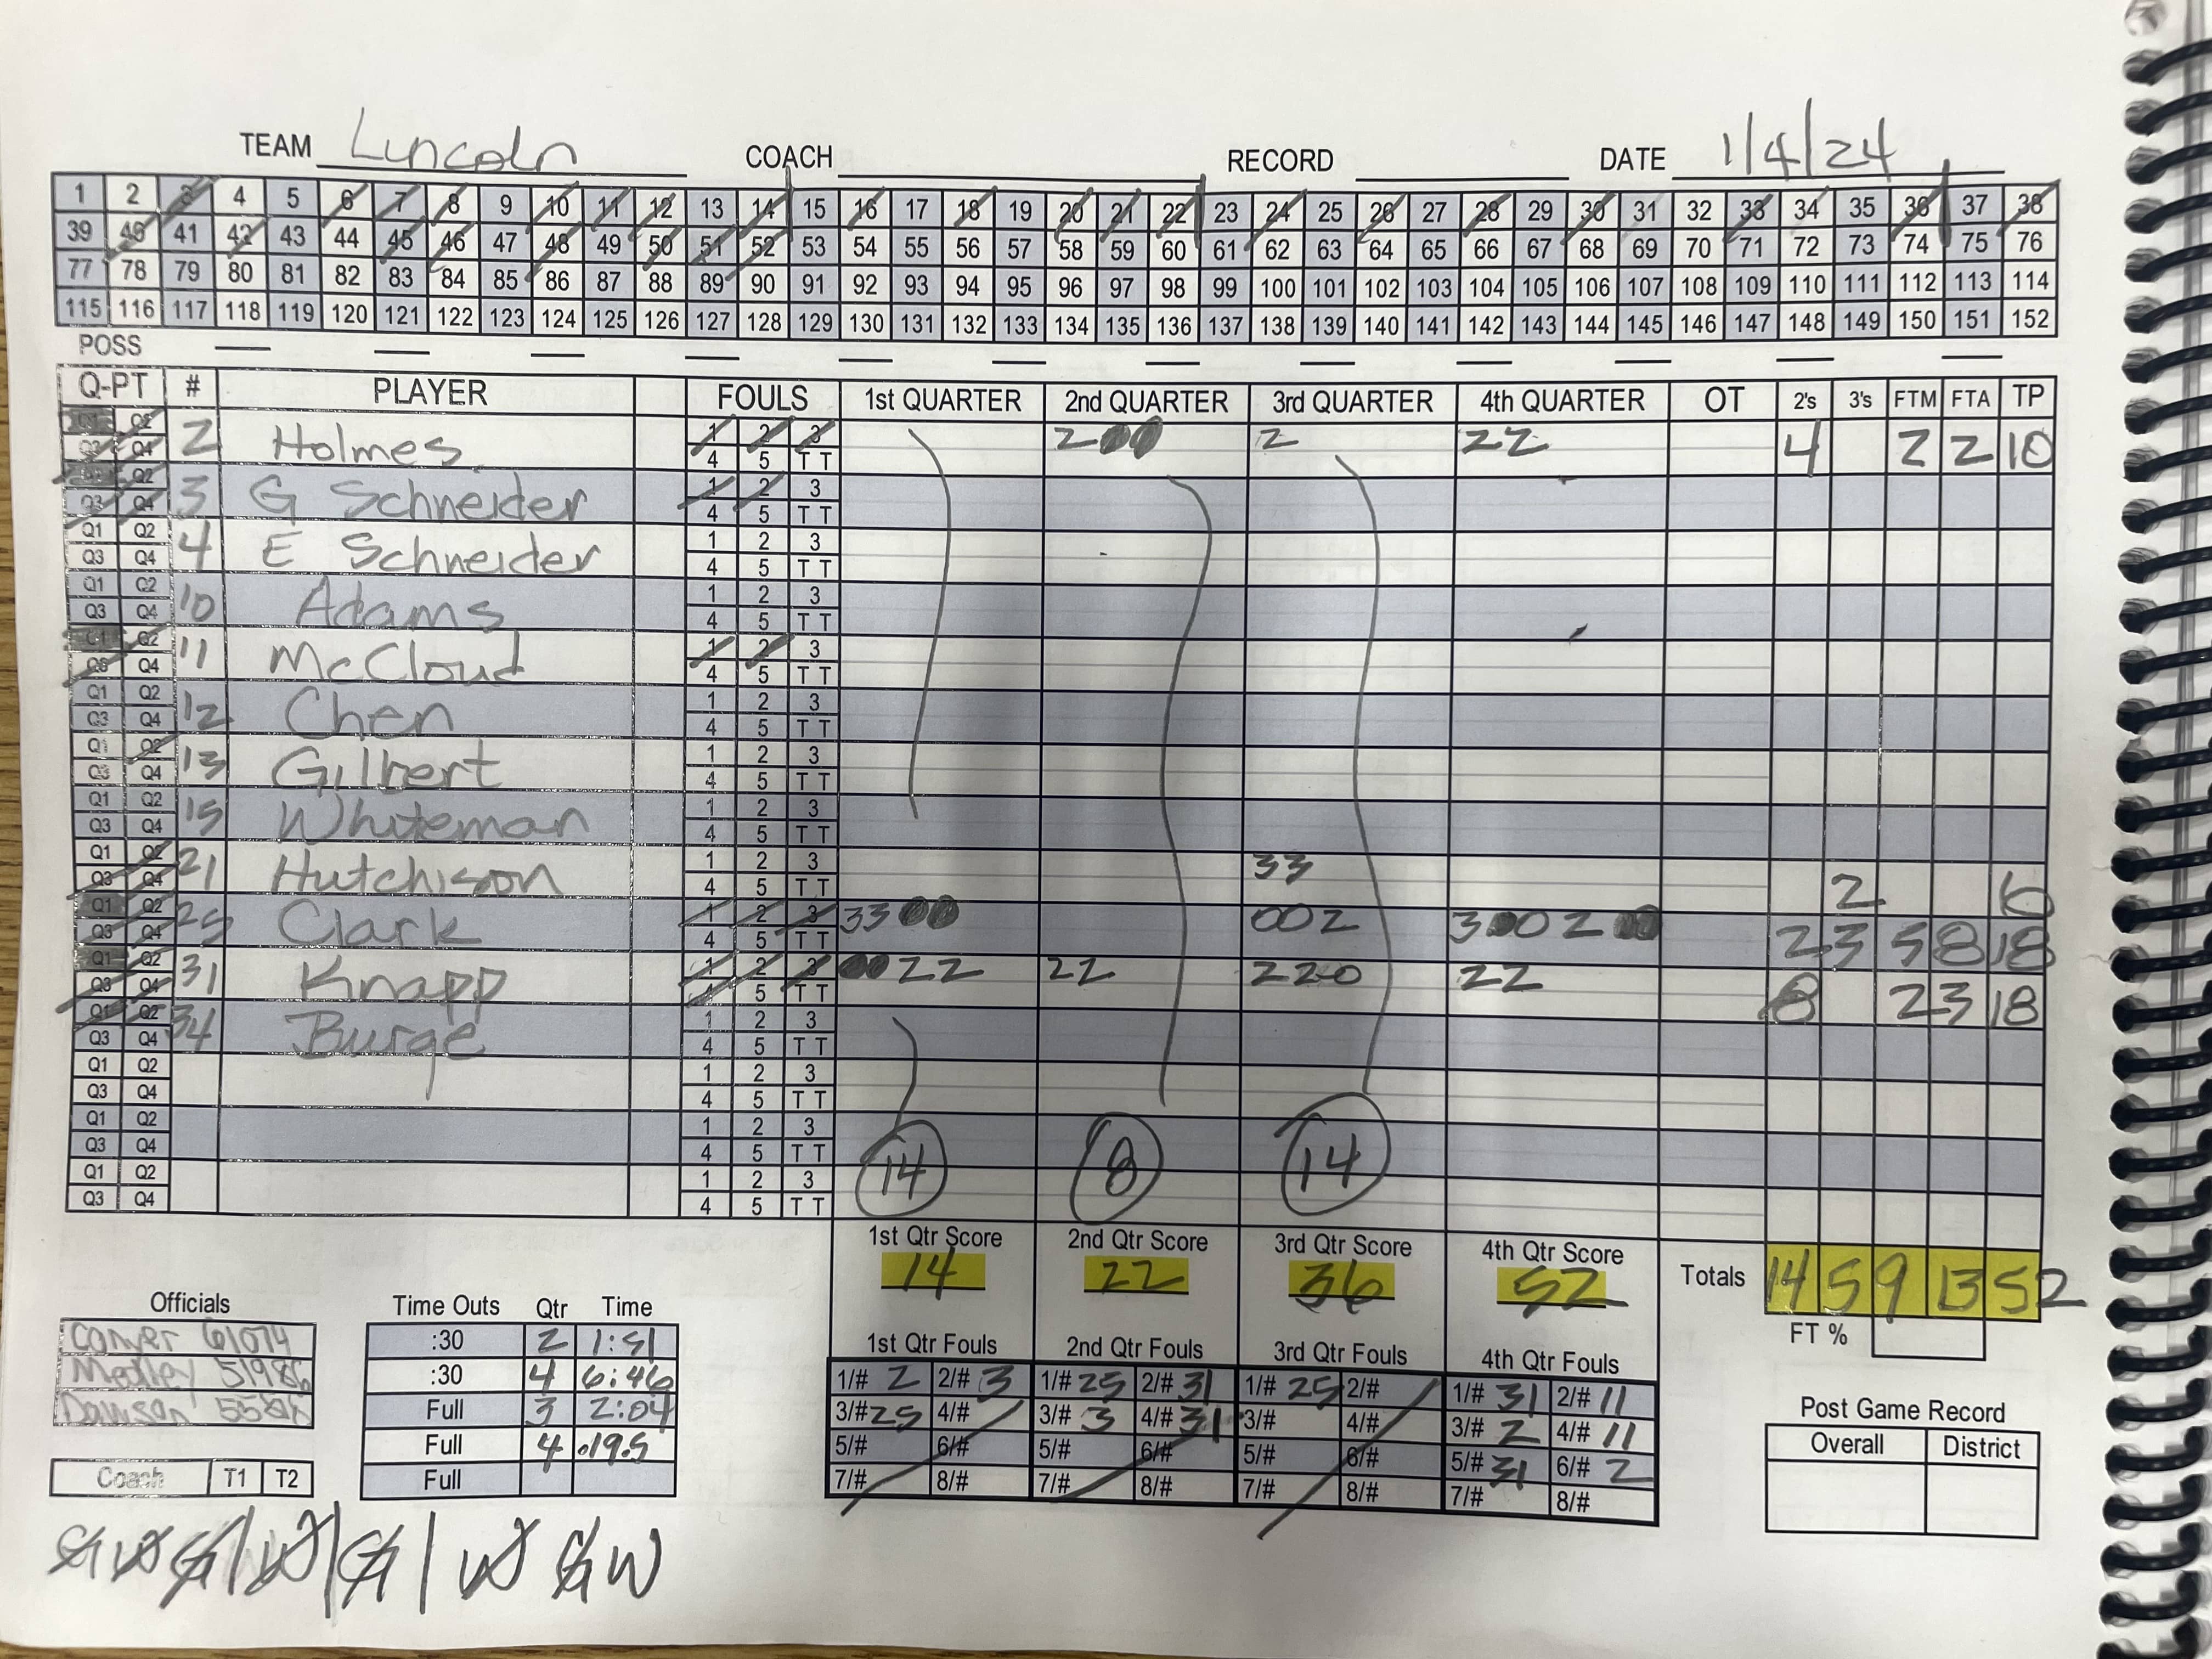 TEAM Lincoln COACH RECORD DATE 1/4/24
1 2 3 4 5 6 7 8 9 10 11 12 13 14 15 16 17 18 19 20 21 22 23 24 25 26 27 28 29 30 31 32 33 34 35 36 37 38
39 40 41 42 43 44 45 46 47 48 49 50 51 52 53 54 55 56 57 58 59 60 61 62 63 64 65 66 67 68 69 70 71 72 73 74 75 76
77 78 79 80 81 82 83 84 85 86 87 88 89 90 91 92 93 94 95 96 97 98 99 100 101 102 103 104 105 106 107 108 109 110 111 112 113 114
115 116 117 118 119 120 121 122 123 124 125 126 127 128 129 130 131 132 133 134 135 136 137 138 139 140 141 142 143 144 145 146 147 148 149 150 151 152
POSS
Q-PT # PLAYER FOULS 1st QUARTER 2nd QUARTER 3rd QUARTER 4th QUARTER OT 2's 3's FTM FTA TP
Q1 Q2 2 Holmes 1 2 3 2 0 0 2 22 4 2 2 10
Q3 Q4 4 5 T T
Q2 3 G Schneider 1 2 3
Q3 Q4 4 5 T T
Q1 Q2 4 E Schneider 1 2 3
Q3 Q4 4 5 T T
Q1 Q2 10 Adams 1 2 3
Q3 Q4 4 5 T T
Q1 Q2 11 McCloud 1 2 3
Q3 Q4 4 5 T T
Q1 Q2 12 Chen 1 2 3
Q3 Q4 4 5 T T
Q1 Q2 13 Gilbert 1 2 3
Q3 Q4 4 5 T T
Q1 Q2 15 Whiteman 1 2 3
Q3 Q4 4 5 T T
Q1 Q2 21 Hutchison 1 2 3 33 2 6
Q3 Q4 4 5 T T
Q1 Q2 25 Clark 1 2 3 33 0 0 002 3 0 0 2 0 0 2 3 5 8 18
Q3 Q4 4 5 T T
Q1 Q2 31 Knapp 1 2 3 0 0 22 22 220 22 8 2 3 18
Q3 Q4 4 5 T T
Q1 Q2 34 Burge 1 2 3
Q3 Q4 4 5 T T
Q1 Q2 1 2 3
Q3 Q4 4 5 T T
Q1 Q2 1 2 3
Q3 Q4 4 5 T T
14 8 14
Q1 Q2 1 2 3
Q3 Q4 4 5 T T
1st Qtr Score 2nd Qtr Score 3rd Qtr Score 4th Qtr Score
14 22 36 52 Totals 14 5 9 13 52
FT %
Officials
Medley 51986
Time Outs Qtr Time
:30 2 1:51
:30 4 6:46
Full 3 2:04
Full 4 .19.5
Full
1st Qtr Fouls 2nd Qtr Fouls 3rd Qtr Fouls 4th Qtr Fouls
1/# 2 2/# 3 1/# 25 2/# 31 1/# 25 2/# 1/# 31 2/# 11
3/# 25 4/# 3/# 3 4/# 31 3/# 4/# 3/# 2 4/# 11
5/# 6/# 5/# 6/# 5/# 6/# 5/# 31 6/# 2
7/# 8/# 7/# 8/# 7/# 8/# 7/# 8/#
Post Game Record
Overall District
Coach T1 T2
G W G | W | G | W G W